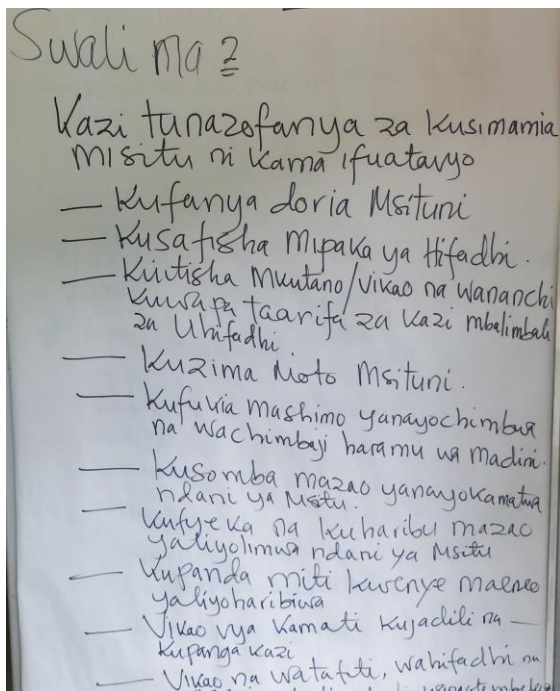 Swali ma 2
Kazi tunazofanya za kusimamia
misitu ni kama ifuatavyo
— Kufanya doria Msituni
— Kusafisha Mipaka ya Hifadhi.
— Kuitisha Mkutano/Vikao na wananchi
kuwapa taarifa za kazi mbalimbali
za Uhifadhi.
— Kuzima Moto Msituni.
— Kufukia mashimo yanayochimbwa
na wachimbaji haramu wa madini.
— Kusomba mazao yanayokamatwa
ndani ya Msitu.
— Kufyeka na kuharibu mazao
yaliyolimwa ndani ya Msitu
— Kupanda miti kwenye maeneo
yaliyoharibiwa
— Vikao vya Kamati kujadili na —
kupanga kazi
— Vikao na watafiti, wahifadhi na